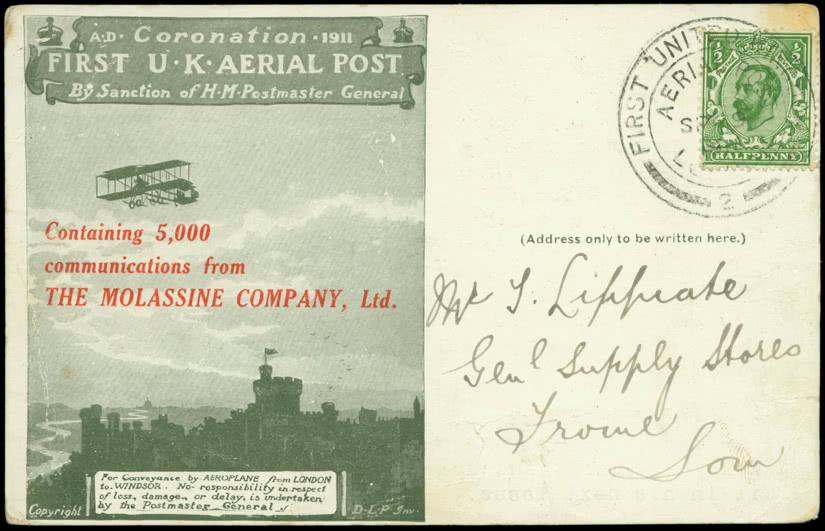 A·D· Coronation · 1911
FIRST U·K·AERIAL POST
By Sanction of H·M·Postmaster General
Containing 5,000
communications from
THE MOLASSINE COMPANY, Ltd.
For Conveyance by AEROPLANE from LONDON
to WINDSOR. No responsibility in respect
of loss, damage, or delay, is undertaken
by the Postmaster General
Copyright
D·L·P Inv.
FIRST UNITED
AERI
2
½ ½
HALFPENNY
(Address only to be written here.)
Mr
Genl Supply Stores
Frome
Som